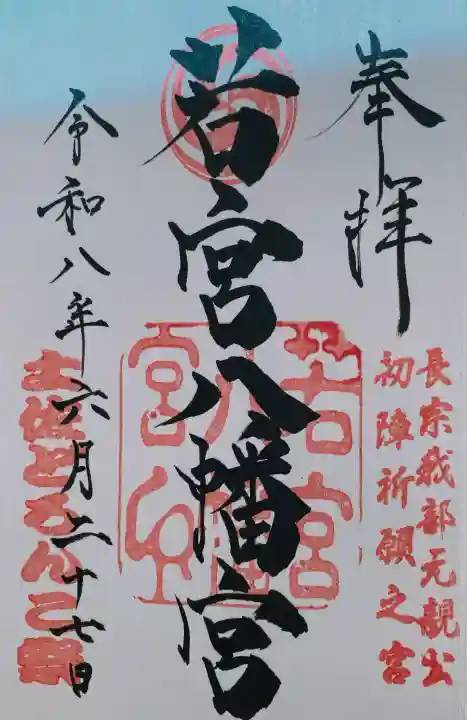 奉拝
長宗我部元親公
初陣祈願之宮
若宮八幡宮
若宮
八幡
宮印
令和八年六月二十七日
土佐どろんこ祭